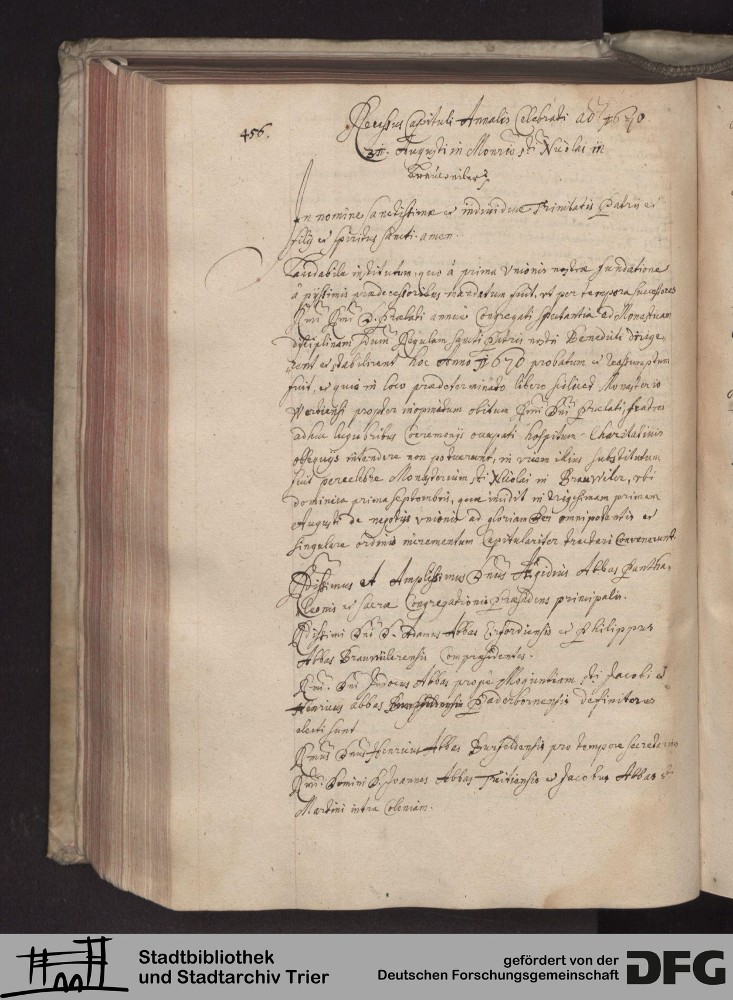 456.
Recessus Capituli Annalis Celebrati ad 1670
31. Augusti in Monrio sti Nicolai in
Brauweiler
In nomine sanctissimæ et individuæ Trinitatis Patris et
filij et spiritus sancti. amen.
Laudabile institutum, quo à prima Unionis nostræ fundatione
à pijssimis prædecessoribus mandatum fuit, ut per tempora successores
Rmi Dni D. Prælati annuè Congregati spectantia ad Monasticam
disciplinam iuxta Regulam sancti Patris nostri Benedicti dirige-
rent et stabilirent hoc Anno 1670 probatum et reassumptum
fuit, et quia in loco prædeterminato libero scilicet Monasterio
Werthensi propter inopinatum obitum Rmi Dni Prælati, fratres
adhuc lugubribus Ceremonijs occupati hospitum Charitativis
obsequijs intendere non potuerunt, in vicem illius substitutum
fuit percelebre Monasterium sti Nicolai in Brauwiler, ubi
dominica prima septembris, quæ incidit in trigesimam primam
Augusti de negotijs unionis ad gloriam Dei omnipotentis et
singulare ordinis incrementum Capitulariter tractari Convenerunt.
Rdissimus et Amplissimus Dnus Ægidius Abbas Pantha-
leonis et sacræ Congregationis Præsidens principalis.
Rdissimi Dni D. Adamus Abbas Erfordiensis et Philippus
Abbas Brauwilerensis Compræsidentes.
Rmi. Dni Judocus Abbas prope Moguntiam sti Jacobi et
Henricus abbas Paderbornensis definitores
electi sunt
Rmus Dnus Henricus Abbas Bursfeldensis pro tempore secretarius
Rmi. Domini D. Joannes Abbas Tuitiensis et Jacobus Abbas S.
Martini intra Coloniam.
Stadtbibliothek
und Stadtarchiv Trier
gefördert von der
Deutschen Forschungsgemeinschaft
DFG